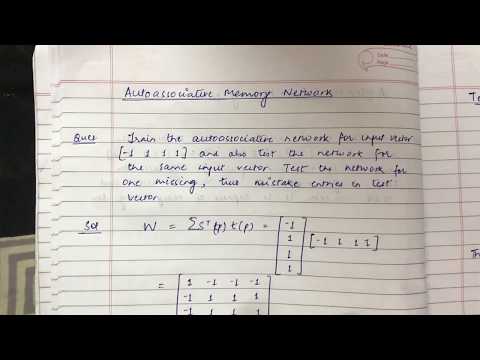 Autoassociative Memory Network
Ques Train the autoassociative network for input vector
[-1 1 1 1] and also test the network for
the same input vector. Test the network for
one missing, two mistake entries in test
vector.
Sol W = ΣSᵀ(p) t(p) = [-1 1 1 1] [-1 1 1 1]
= [1 -1 -1 -1
-1 1 1 1
-1 1 1 1
Te
Th